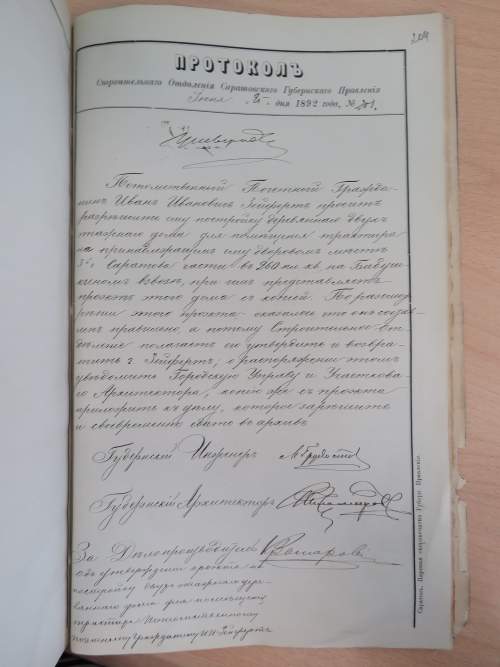 204
ПРОТОКОЛЪ
Строительнаго Отдѣленія Саратовскаго Губернскаго Правленія
Іюня дня 1892 года, №
Потомственный Почетный Гражда-
нинъ Иванъ Ивановичъ Зейфертъ проситъ
разрѣшить ему постройку деревяннаго двухъ
этажнаго дома для помѣщенія трактира
на принадлежащемъ ему дворовомъ мѣстѣ
3й Саратова части въ 260 мъ кв на Бабуш-
киномъ взвозѣ, при чемъ представляетъ
проэктъ этого дома съ копіей. По разсмо-
трѣніи этого проэкта оказалось что онъ состав-
ленъ правильно а потому Строительное От-
дѣленіе полагаетъ его утвердить и возвра-
тить г. Зейфертъ; о распоряженіи этомъ
увѣдомить Городскую Управу и Участкова-
го Архитектора, копію же съ проэкта
пріложить къ дѣлу, которое зарѣшить
и своевременно сдать въ архивъ
Губернскій Инженеръ
Губернскій Архитекторъ
За Дѣлопроизводителя
Объ утвержденіи проэкта на
постройку двухъэтажнаго дере-
вяннаго дома для помѣщенія
трактира Потомственному
почетному Гражданину И.И. Зейфертъ